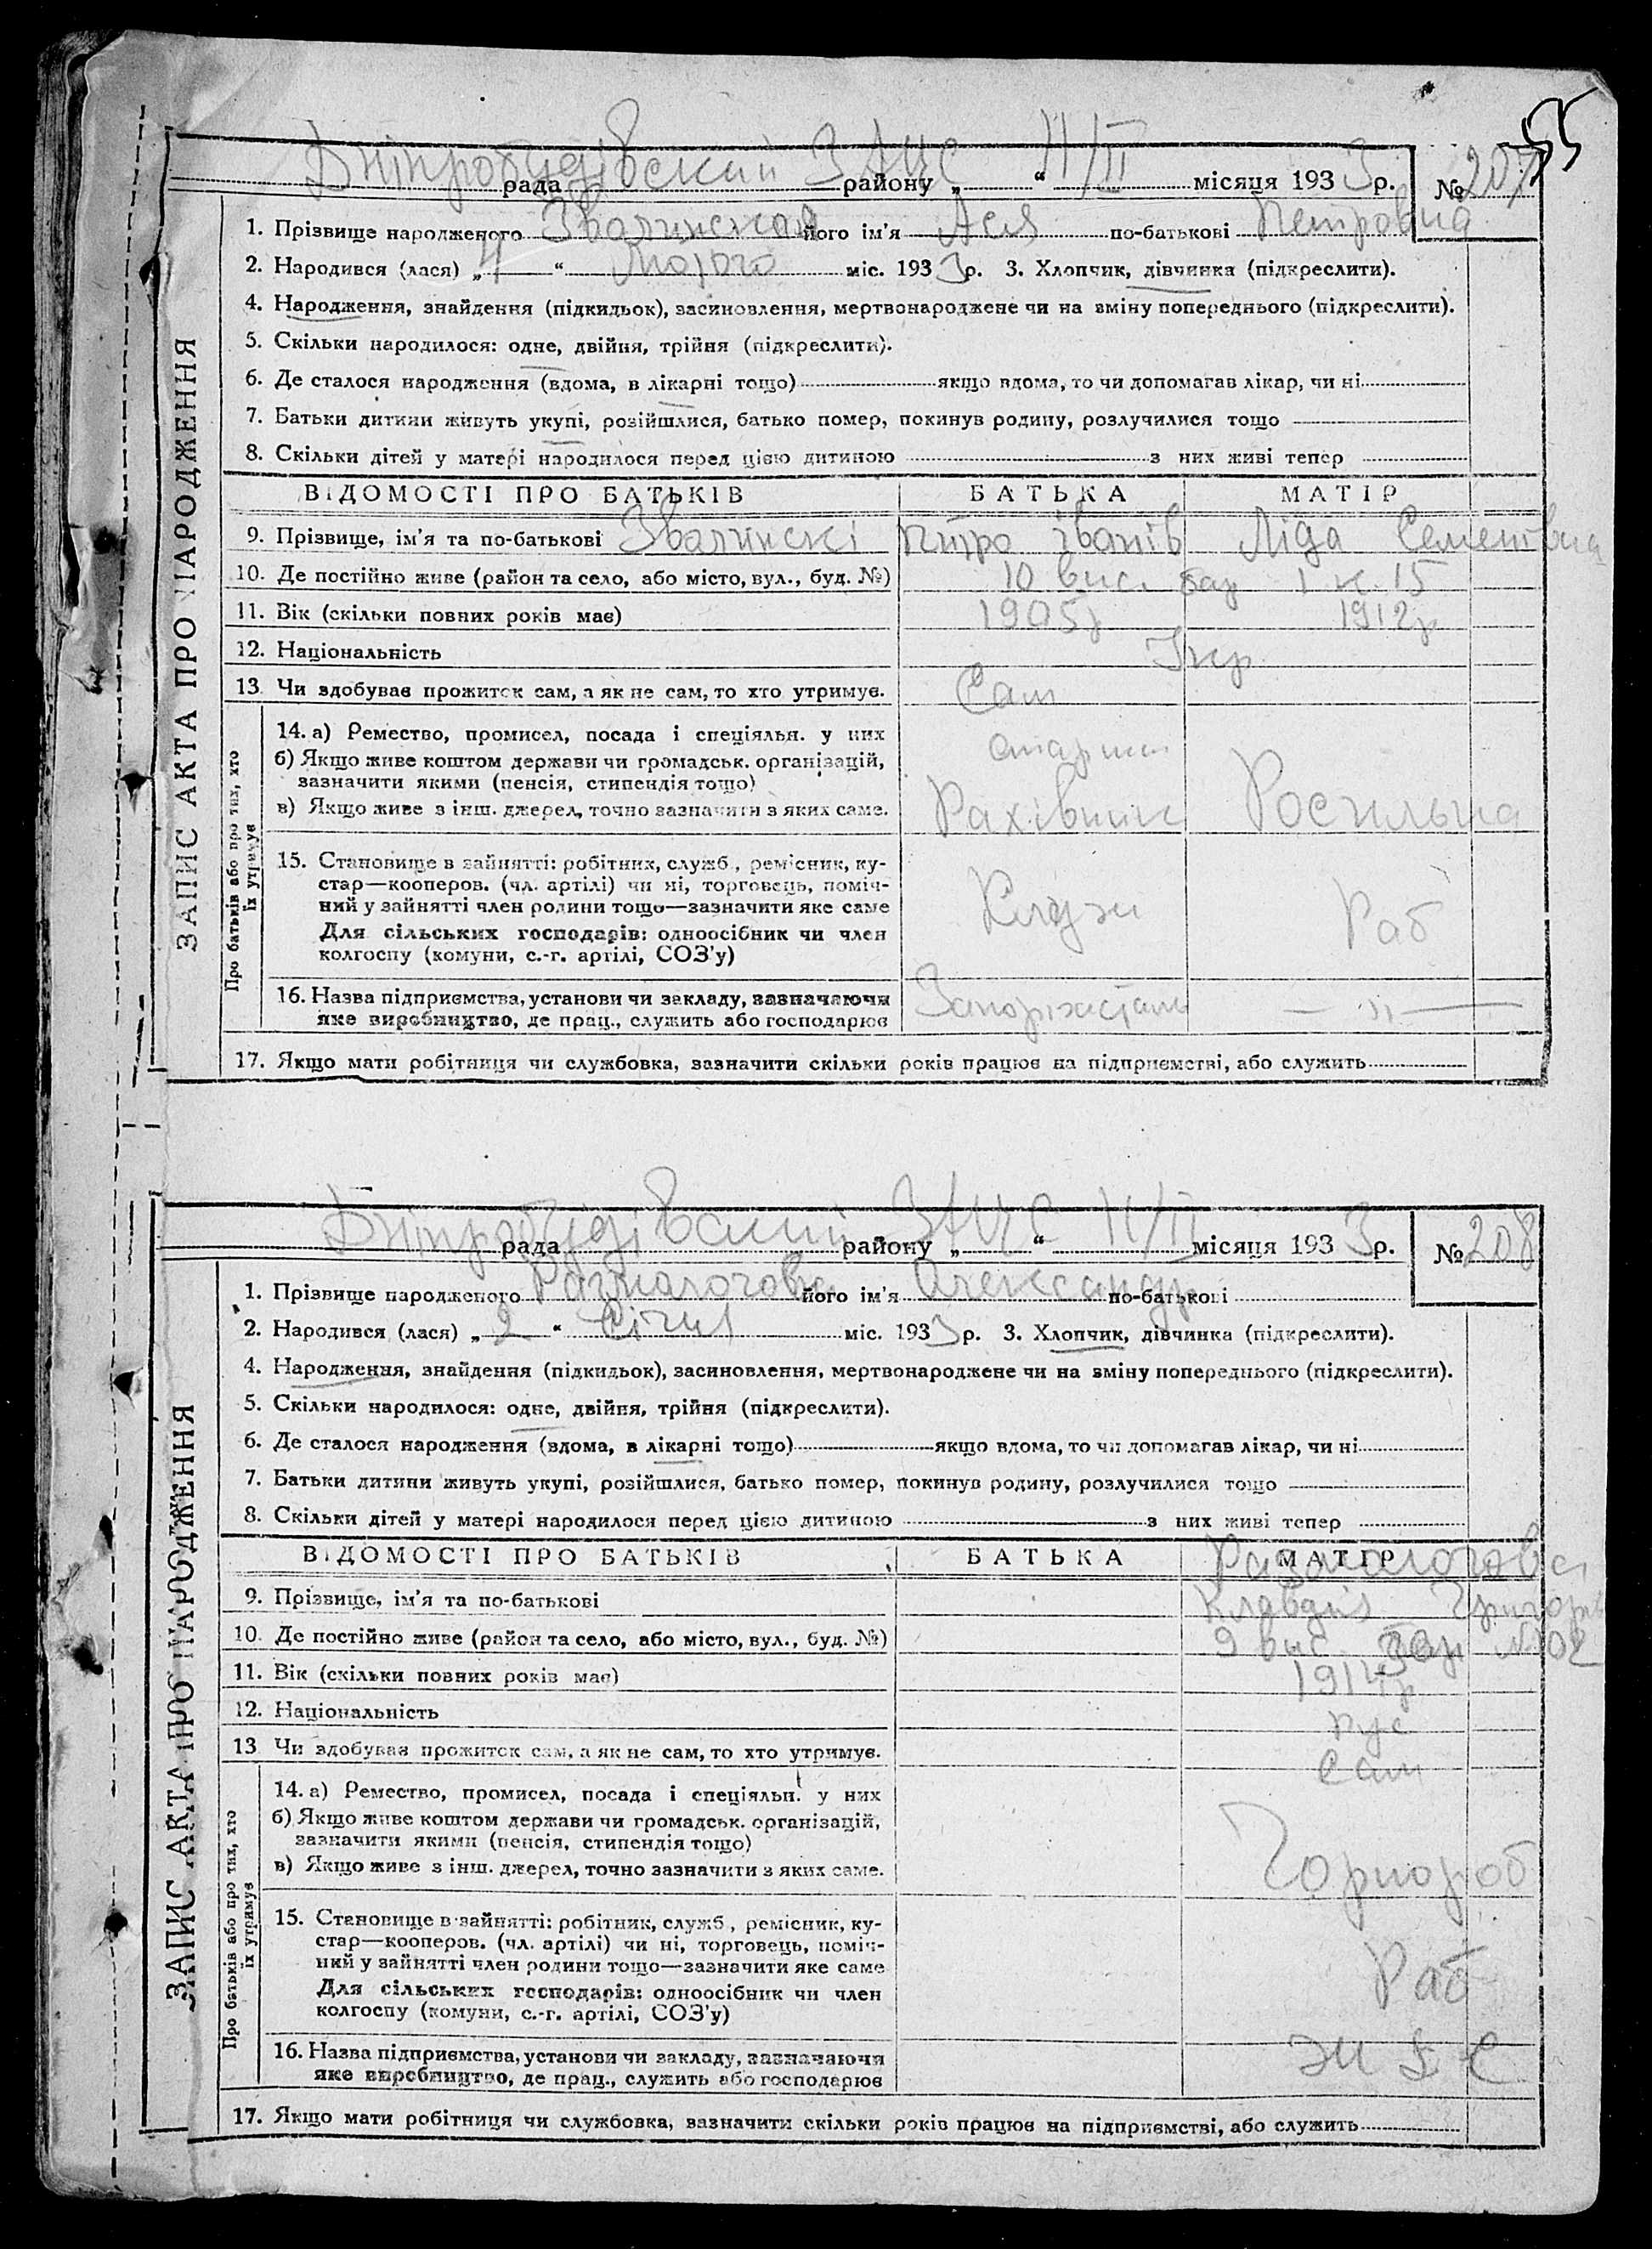 55
Дніпробудівский ЗАЦС 11/II
рада району „ “ місяця 1933 р. № 207
1. Прізвище народженого його ім'я Ася по-батькові Петровна
2. Народився (лася) „4“ Лютого міс. 1933 р. 3. Хлопчик, дівчинка (підкреслити).
4. Народження, знайдення (підкидьок), засиновлення, мертвонароджене чи на зміну попереднього (підкреслити).
5. Скільки народилося: одне, двійня, трійня (підкреслити).
6. Де сталося народження (вдома, в лікарні тощо) якщо вдома, то чи допомагав лікар, чи ні
7. Батьки дитини живуть укупі, розійшлися, батько помер, покинув родину, розлучилися тощо
8. Скільки дітей у матері народилося перед цією дитиною з них живі тепер
ВІДОМОСТІ ПРО БАТЬКІВ БАТЬКА МАТІР
9. Прізвище, ім'я та по-батькові Петро Іванів Ліда Семенівна
10. Де постійно живе (район та село, або місто, вул., буд. №) 10 вис. бар 1 к. 15
11. Вік (скільки повних років має) 1905р 1912р
12. Національність Укр
13. Чи здобуває прожиток сам, а як не сам, то хто утримує. Сам
Про батьків або про тих, хто їх утримує
14. а) Ремество, промисел, посада і спеціяльн. у них
б) Якщо живе коштом держави чи громадськ. організацій,
зазначити якими (пенсія, стипендія тощо)
в) Якщо живе з інш. джерел, точно зазначити з яких саме. Рахівник
15. Становище в зайнятті: робітник, служб., ремісник, ку-
стар—кооперов. (чл. артілі) чи ні, торговець, поміч-
ний у зайнятті член родини тощо—зазначити яке саме Раб
Для сільських господарів: одноосібник чи член
колгоспу (комуни, с.-г. артілі, СОЗ'у)
16. Назва підприємства, установи чи закладу, зазначаючи Запоріжсталь — „ —
яке виробництво, де прац., служить або господарює
17. Якщо мати робітниця чи службовка, зазначити скільки років працює на підприємстві, або служить
ЗАПИС АКТА ПРО НАРОДЖЕННЯ
Дніпробудівский ЗАЦС 11/II
рада району „ “ місяця 1933 р. № 208
1. Прізвище народженого його ім'я Олександр по-батькові
2. Народився (лася) „2“ Січня міс. 1933 р. 3. Хлопчик, дівчинка (підкреслити).
4. Народження, знайдення (підкидьок), засиновлення, мертвонароджене чи на зміну попереднього (підкреслити).
5. Скільки народилося: одне, двійня, трійня (підкреслити).
6. Де сталося народження (вдома, в лікарні тощо) якщо вдома, то чи допомагав лікар, чи ні
7. Батьки дитини живуть укупі, розійшлися, батько помер, покинув родину, розлучилися тощо
8. Скільки дітей у матері народилося перед цією дитиною з них живі тепер
ВІДОМОСТІ ПРО БАТЬКІВ БАТЬКА МАТІР
9. Прізвище, ім'я та по-батькові Клавдія Григорів
10. Де постійно живе (район та село, або місто, вул., буд. №) 9 вис бар №102
11. Вік (скільки повних років має) 1914р
12. Національність Рус
13 Чи здобуває прожиток сам, а як не сам, то хто утримує. Сам
Про батьків або про тих, хто їх утримує
14. а) Ремество, промисел, посада і спеціяльн. у них
б) Якщо живе коштом держави чи громадськ. організацій,
зазначити якими (пенсія, стипендія тощо)
в) Якщо живе з інш. джерел, точно зазначити з яких саме. Чорнороб
15. Становище в зайнятті: робітник, служб., ремісник, ку-
стар—кооперов. (чл. артілі) чи ні, торговець, поміч-
ний у зайнятті член родини тощо—зазначити яке саме Раб
Для сільських господарів: одноосібник чи член
колгоспу (комуни, с.-г. артілі, СОЗ'у)
16. Назва підприємства, установи чи закладу, зазначаючи
яке виробництво, де прац., служить або господарює
17. Якщо мати робітниця чи службовка, зазначити скільки років працює на підприємстві, або служить
ЗАПИС АКТА ПРО НАРОДЖЕННЯ